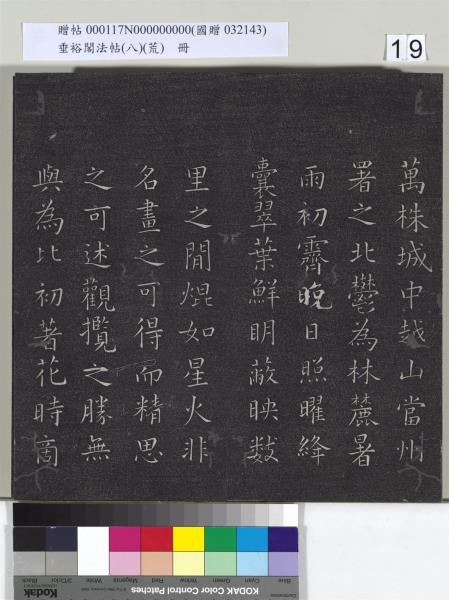 贈帖 000117N000000000(國贈 032143)
垂裕閣法帖(八)(荒) 冊
19
萬株城中越山當州
署之北鬱為林麓暑
雨初霽晚日照曜絳
囊翠葉鮮明蔽映数
里之間焜如星火非
名畫之可得而精思
之可述觀攬之勝無
與為比初著花時商
Kodak
KODAK Color Control Patches
Blue
Cyan
Green
Yellow
Red
Magenta
White
3/Color
Black